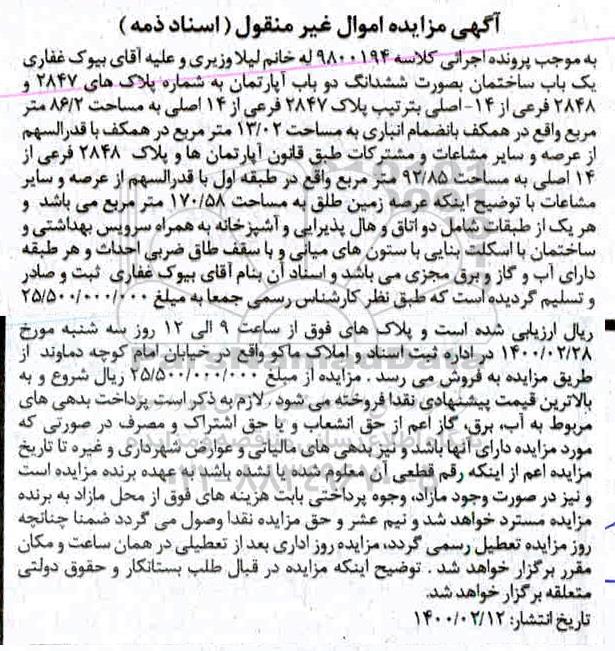 آگهی مزایده اموال غیر منقول ( اسناد ذمه )
به موجب پرونده اجرائی کلاسه ۹۸۰۰۱۹۴ له خانم لیلا وزیری و علیه آقای بیوک غفاری
یک باب ساختمان بصورت ششدانگ دو باب آپارتمان به شماره پلاک های ۲۸۴۷ و
۲۸۴۸ فرعی از ۱۴- اصلی بترتیب پلاک ۲۸۴۷ فرعی از ۱۴ اصلی به مساحت ۸۶/۲ متر
مربع واقع در همکف بانضمام انباری به مساحت ۱۳/۰۲ متر مربع در همکف با قدرالسهم
از عرصه و سایر مشاعات و مشترکات طبق قانون آپارتمان ها و پلاک ۲۸۴۸ فرعی از
۱۴ اصلی به مساحت ۹۲/۸۵ متر مربع واقع در طبقه اول با قدرالسهم از عرصه و سایر
مشاعات با توضیح اینکه عرصه زمین طلق به مساحت ۱۷۰/۵۸ متر مربع می باشد و
هر یک از طبقات شامل دو اتاق و هال پذیرایی و آشپزخانه به همراه سرویس بهداشتی و
ساختمان با اسکلت بنایی با ستون های میانی و با سقف طاق ضربی احداث و هر طبقه
دارای آب و گاز و برق مجزی می باشد و اسناد آن بنام آقای بیوک غفاری ثبت و صادر
و تسلیم گردیده است که طبق نظر کارشناس رسمی جمعا به مبلغ ۲۵/۵۰۰/۰۰۰/۰۰۰
ریال ارزیابی شده است و پلاک های فوق از ساعت ۹ الی ۱۲ روز سه شنبه مورخ
۱۴۰۰/۰۲/۲۸ در اداره ثبت اسناد و املاک ماکو واقع در خیابان امام کوچه دماوند از
طریق مزایده به فروش می رسد . مزایده از مبلغ ۲۵/۵۰۰/۰۰۰/۰۰۰ ریال شروع و به
بالاترین قیمت پیشنهادی نقدا فروخته می شود . لازم به ذکر است پرداخت بدهی های
مربوط به آب، برق، گاز اعم از حق انشعاب و یا حق اشتراک و مصرف در صورتی که
مورد مزایده دارای آنها باشد و نیز بدهی های مالیاتی و عوارض شهرداری و غیره تا تاریخ
مزایده اعم از اینکه رقم قطعی آن معلوم شده یا نشده باشد به عهده برنده مزایده است
و نیز در صورت وجود مازاد، وجوه پرداختی بابت هزینه های فوق از محل مازاد به برنده
مزایده مسترد خواهد شد و نیم عشر و حق مزایده نقدا وصول می گردد ضمنا چنانچه
روز مزایده تعطیل رسمی گردد، مزایده روز اداری بعد از تعطیلی در همان ساعت و مکان
مقرر برگزار خواهد شد . توضیح اینکه مزایده در قبال طلب بستانکار و حقوق دولتی
متعلقه برگزار خواهد شد.
تاریخ انتشار: ۱۴۰۰/۰۲/۱۲